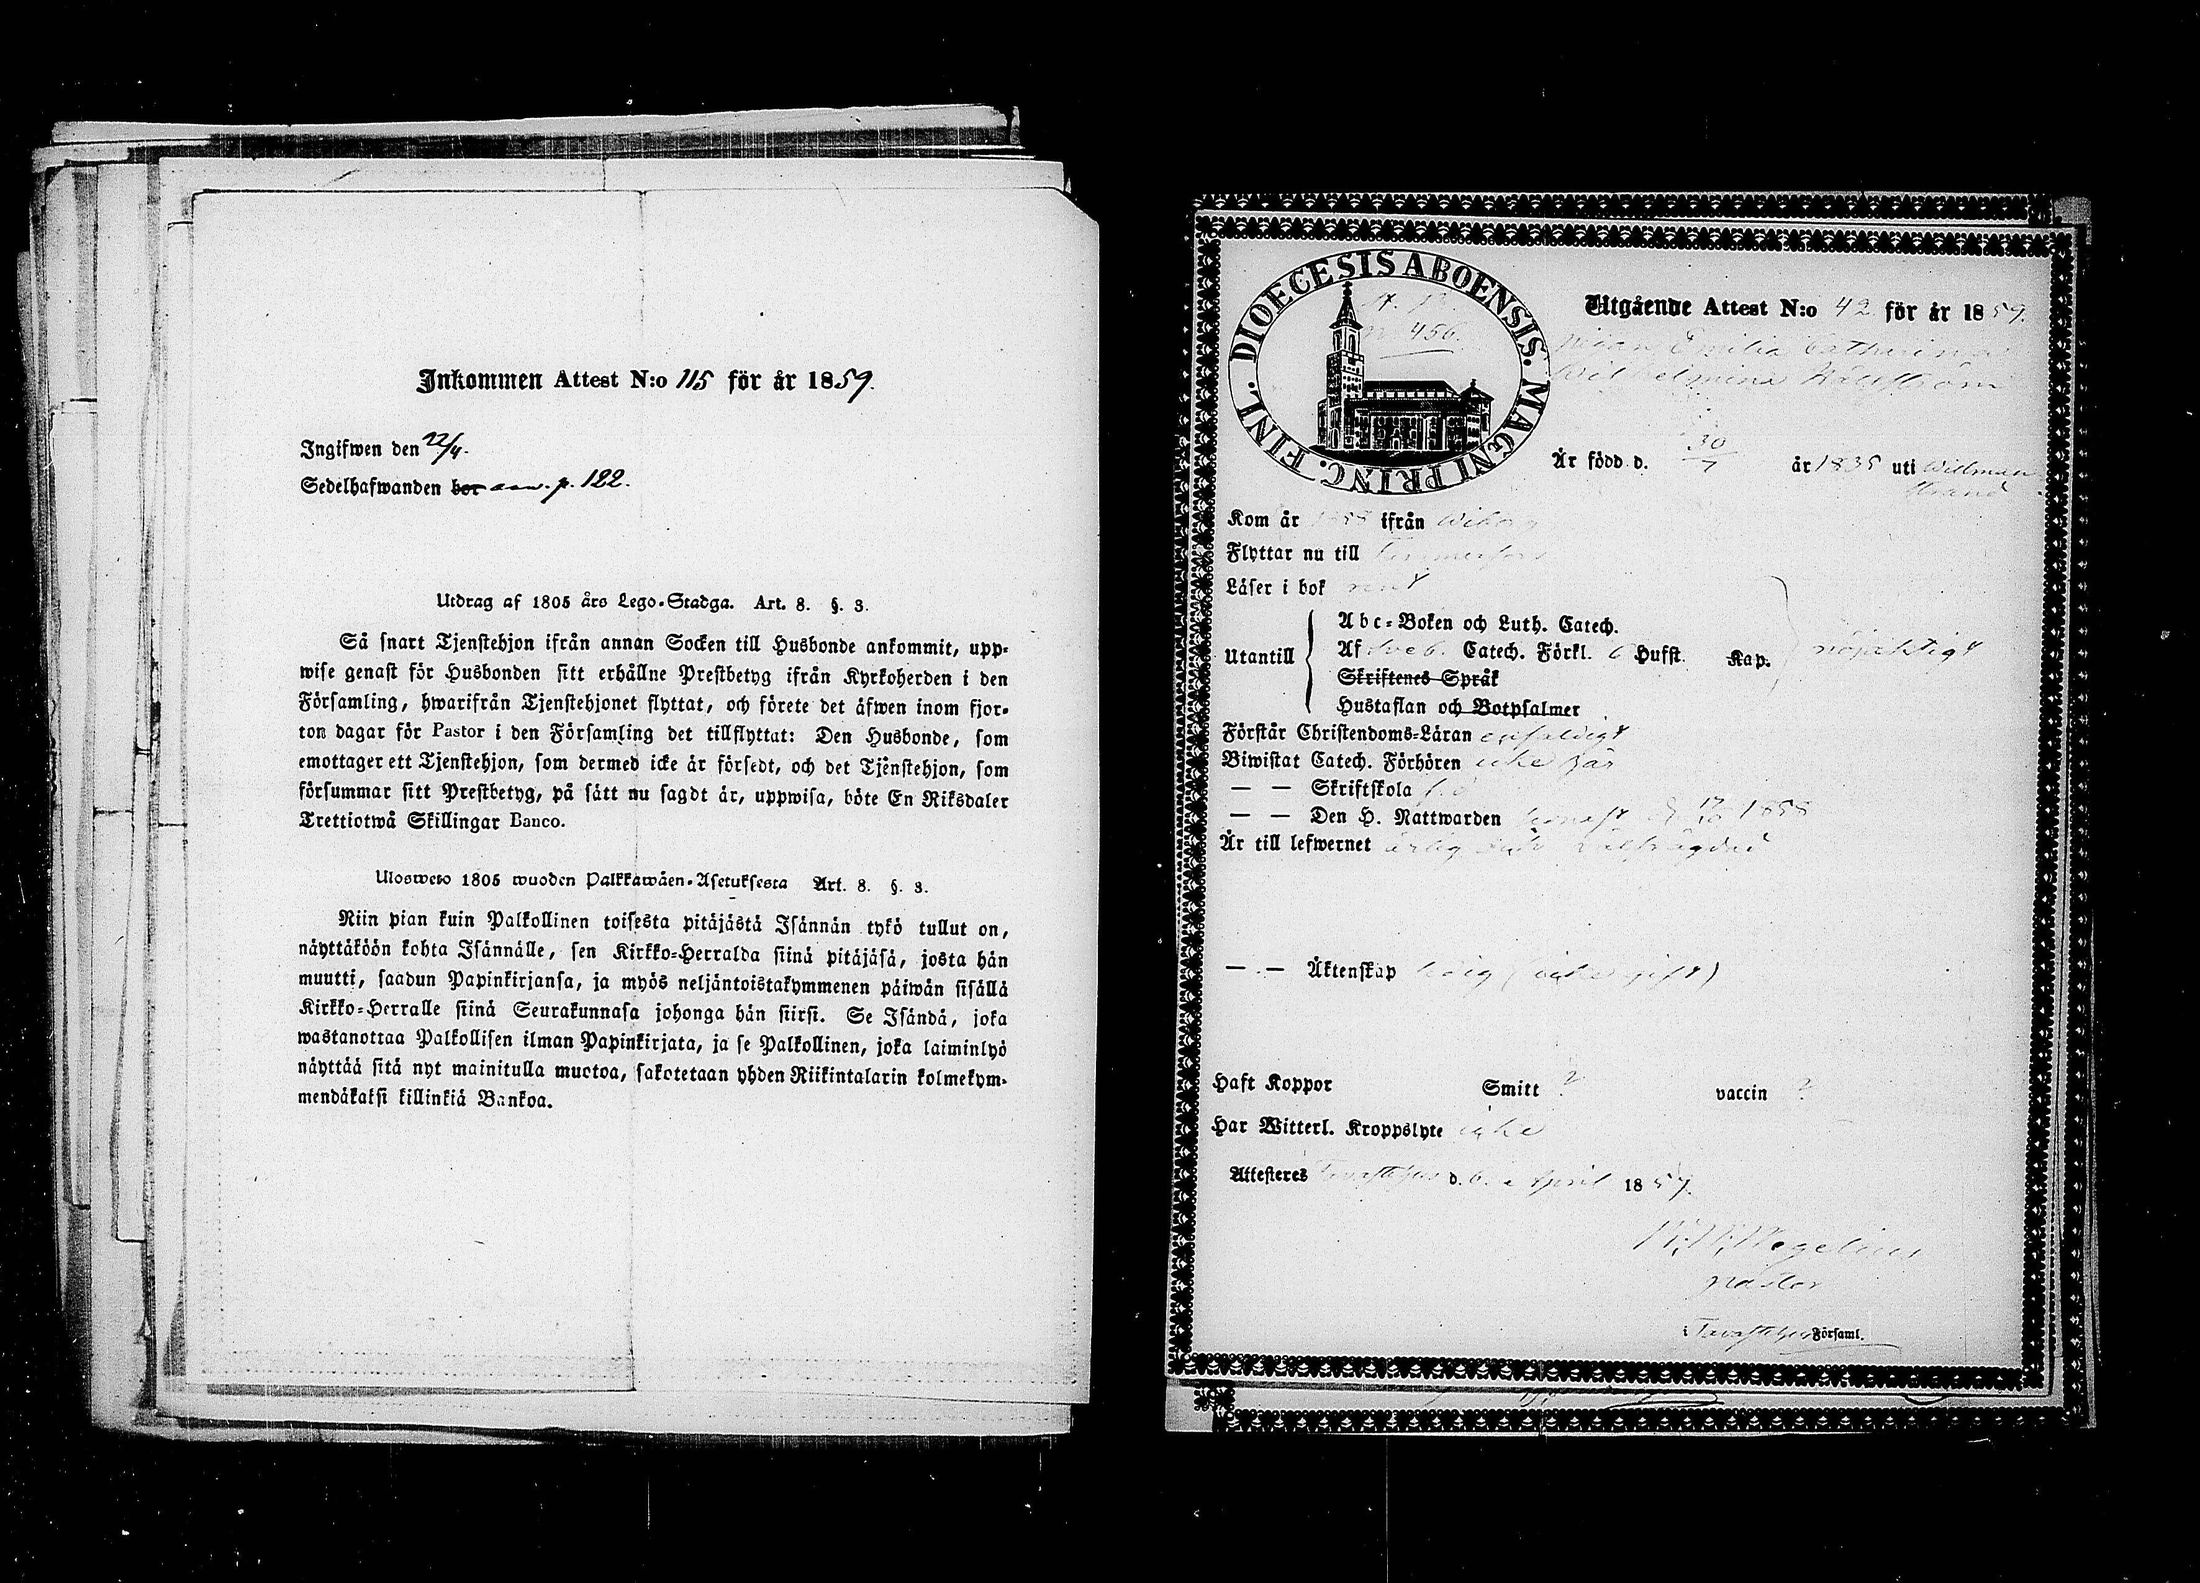 Inkommen Attest N:o 115 för år 1859.
Ingifwen den 22/4.
Sedelhafwanden bor p. 122.
Utdrag af 1805 års Lego-Stadga. Art. 8. §. 3.
Så snart Tjenstehjon ifrån annan Socken till Husbonde ankommit, upp-
wise genast för Husbonden sitt erhållne Prestbetyg ifrån Kyrkoherden i den
Församling, hwarifrån Tjenstehjonet flyttat, och förete det äfwen inom fjor-
ton dagar för Pastor i den Församling det tillflyttat: Den Husbonde, som
emottager ett Tjenstehjon, som dermed icke är försedt, och det Tjenstehjon, som
försummar sitt Prestbetyg, på sätt nu sagdt är, uppwisa, böte En Riksdaler
Trettiotwå Skillingar Banco.
Ulosweto 1805 wuoden Palkkawäen-Asetuksesta Art. 8. §. 3.
Niin pian kuin Palkollinen toisesta pitäjästä Isännän tykö tullut on,
näyttäköön kohta Isännälle, sen Kirkko-Herralda siinä pitäjäsä, josta hän
muutti, saadun Papinkirjansa, ja myös neljäntoistakymmenen päiwän sisällä
Kirkko-Herralle siinä Seurakunnasa johonga hän siirsi. Se Isändä, joka
wastanottaa Palkollisen ilman Papinkirjata, ja se Palkollinen, joka laiminlyö
näyttää sitä nyt mainitulla muotoa, sakotetaan yhden Riikintalarin kolmekym-
mendäkaksi killinkiä Bankoa.
DIOECESIS ABOENSIS. MAGNI PRINC. FINL.
456.
Utgående Attest N:o 42 för år 1859.
Pigan Emilia Catharina
Wilhelmina
Är född d. 30/7 år 1835 uti Willman
strand
Kom år 1858 ifrån Wiborg
Flyttar nu till Tammerfors
Läser i bok rent
Utantill
Abc-Boken och Luth. Catech.
Af Sveb. Catech. Förkl. 6 Husst. Kap. nöjaktigt
Skriftenes Språk
Hustaflan och Botpsalmer
Förstår Christendoms-Läran enfaldigt
Biwistat Catech. Förhören icke här
— — Skriftskola
— — Den H. Nattwarden senast 1858
Är till lefwernet ärlig och
— — Äktenskap ledig (icke gift)
Haft Koppor Smitt ? vaccin ?
Har Witterl. Kroppslyte icke
Attesteres Tavastehus d. 6. April 1859.
Wegelius
pastor
i Tavastehus Församl.